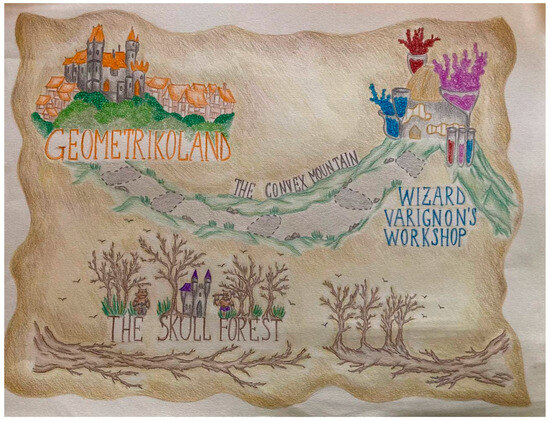 GEOMETRIKOLAND
THE CONVEX MOUNTAIN
WIZARD
VARIGNON'S
WORKSHOP
THE SKULL FOREST